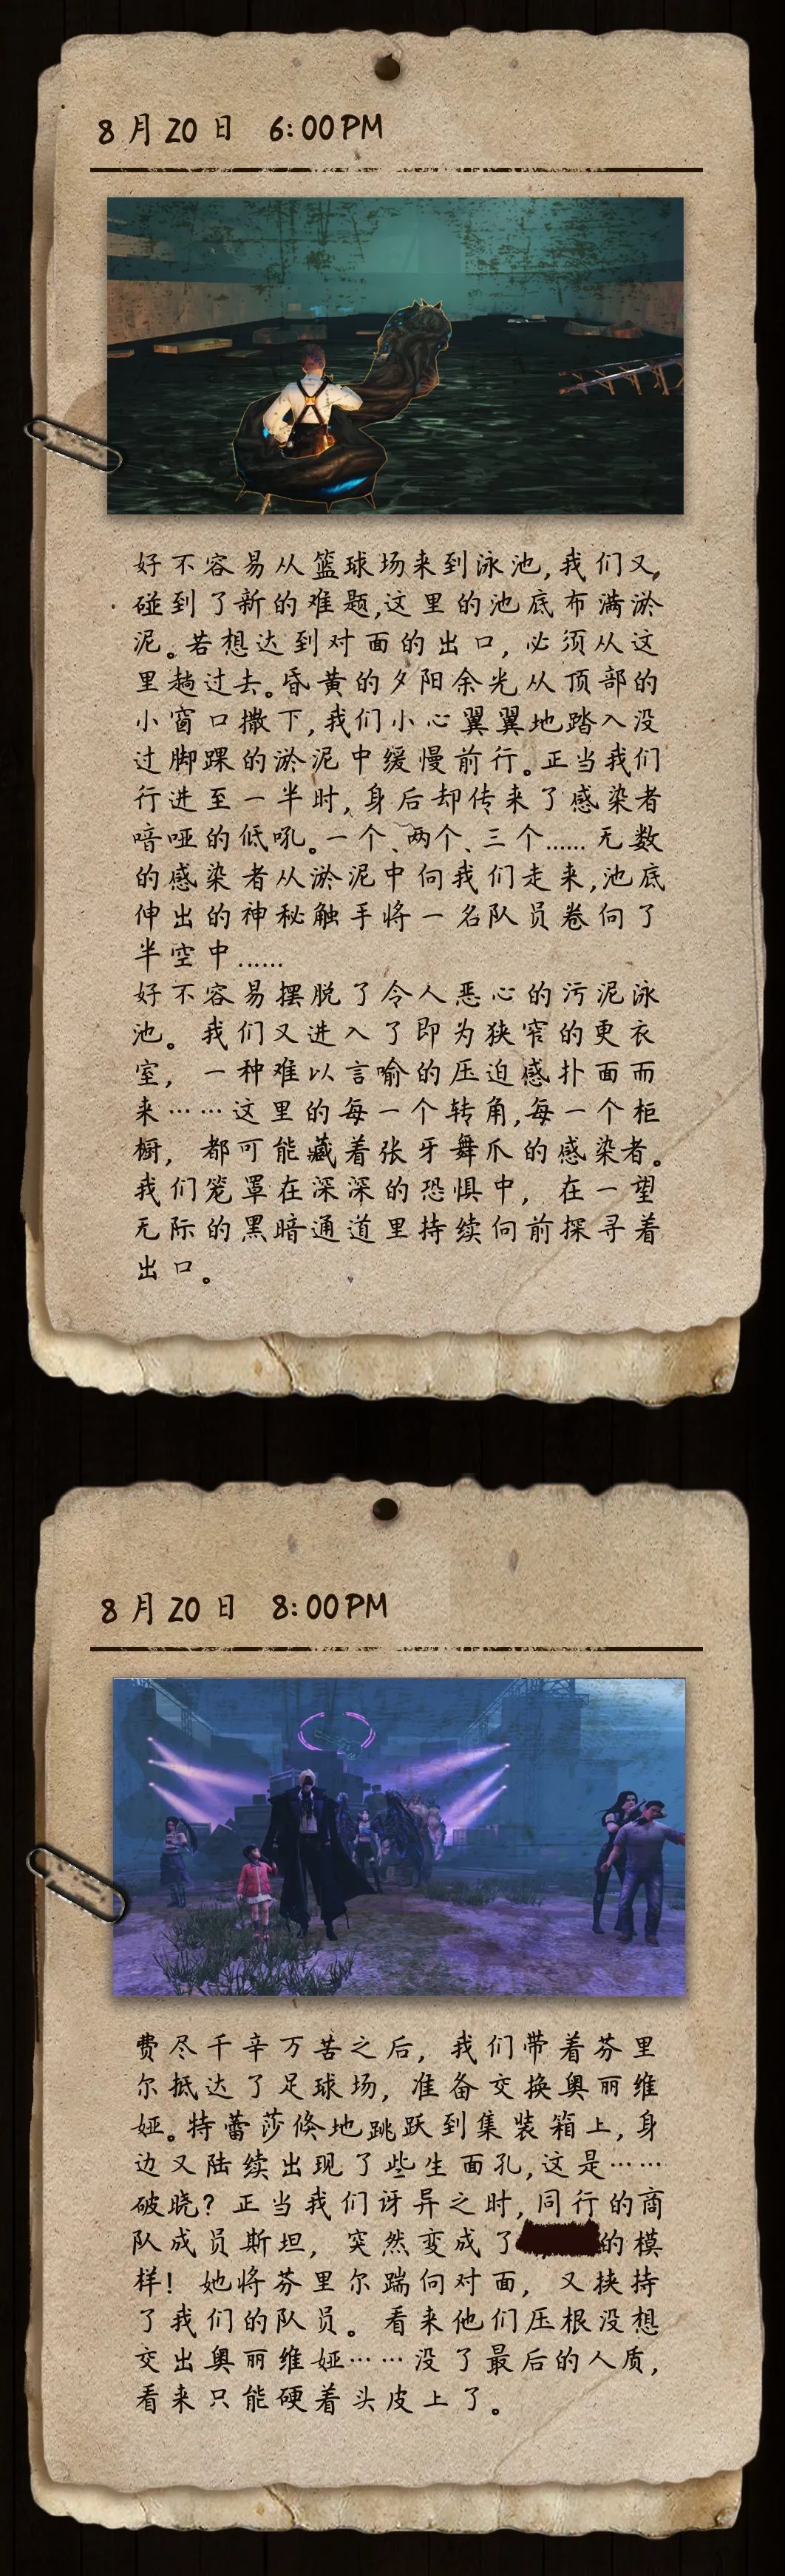 8月20日 6:00PM
好不容易从篮球场来到泳池,我们又,
碰到了新的难题,这里的池底布满淤
泥。若想达到对面的出口,必须从这
里趟过去。昏黄的夕阳余光从顶部的
小窗口撒下,我们小心翼翼地踏入没
过脚踝的淤泥中缓慢前行。正当我们
行进至一半时,身后却传来了感染者
喑哑的低吼。一个、两个、三个……无数
的感染者从淤泥中向我们走来,池底
伸出的神秘触手将一名队员卷向了
半空中……
好不容易摆脱了令人恶心的污泥泳
池。我们又进入了即为狭窄的更衣
室,一种难以言喻的压迫感扑面而
来……这里的每一个转角,每一个柜
橱,都可能藏着张牙舞爪的感染者。
我们笼罩在深深的恐惧中,在一望
无际的黑暗通道里持续向前探寻着
出口。
8月20日 8:00PM
费尽千辛万苦之后,我们带着芬里
尔抵达了足球场,准备交换奥丽维
娅。特蕾莎倏地跳跃到集装箱上,身
边又陆续出现了些生面孔,这是……
破晓?正当我们讶异之时,同行的商
队成员斯坦,突然变成了的模
样!她将芬里尔踹向对面,又挟持
了我们的队员。看来他们压根没想
交出奥丽维娅……没了最后的人质,
看来只能硬着头皮上了。